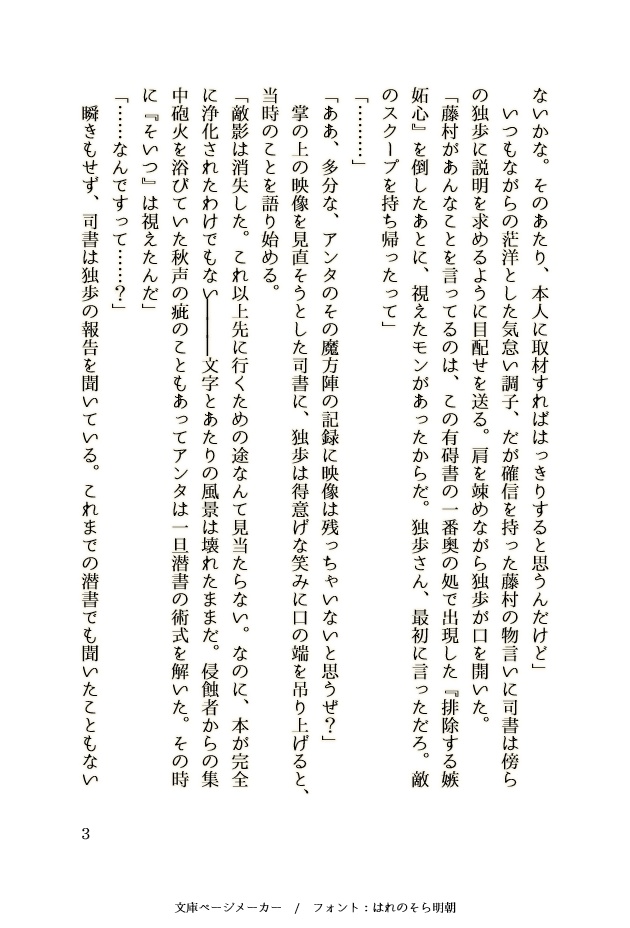 ないかな。そのあたり、本人に取材すればはっきりすると思うんだけど」
　いつもながらの茫洋とした気怠い調子、だが確信を持った藤村の物言いに司書は傍ら
の独歩に説明を求めるように目配せを送る。肩を竦めながら独歩が口を開いた。
「藤村があんなことを言ってるのは、この有碍書の一番奥の処で出現した『排除する嫉
妬心』を倒したあとに、視えたモンがあったからだ。独歩さん、最初に言っただろ。敵
のスクープを持ち帰ったって」
「…………」
「ああ、多分な、アンタのその魔方陣の記録に映像は残っちゃいないと思うぜ？」
　掌の上の映像を見直そうとした司書に、独歩は得意げな笑みに口の端を吊り上げると、
当時のことを語り始める。
「敵影は消失した。これ以上先に行くための途なんて見当たらない。なのに、本が完全
に浄化されたわけでもない―――文字とあたりの風景は壊れたままだ。侵蝕者からの集
中砲火を浴びていた秋声の疵のこともあってアンタは一旦潜書の術式を解いた。その時
に『そいつ』は視えたんだ」
「……なんですって……？」
　瞬きもせず、司書は独歩の報告を聞いている。これまでの潜書でも聞いたこともない
3
文庫ページメーカー　/　フォント：はれのそら明朝